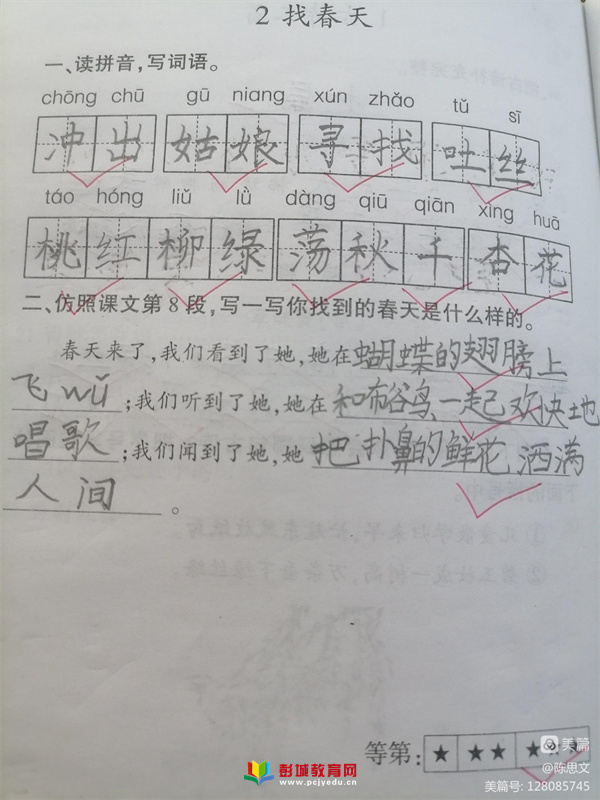 2 找春天
一、读拼音,写词语。
chōng chū gū niang xún zhǎo tǔ sī
冲出 姑娘 寻找 吐丝
táo hóng liǔ lǜ dàng qiū qiān xìng huā
桃红柳绿 荡秋千 杏花
二、仿照课文第8段,写一写你找到的春天是什么样的。
春天来了,我们看到了她,她在蝴蝶的翅膀上
飞wǔ;我们听到了她,她在和布谷鸟一起欢快地
唱歌;我们闻到了她,她把扑鼻的鲜花洒满
人间。
等第: ★ ★★ ★
彭城教育网
www.pcjyedu.cn
美篇
@陈思文
美篇号: 128085745